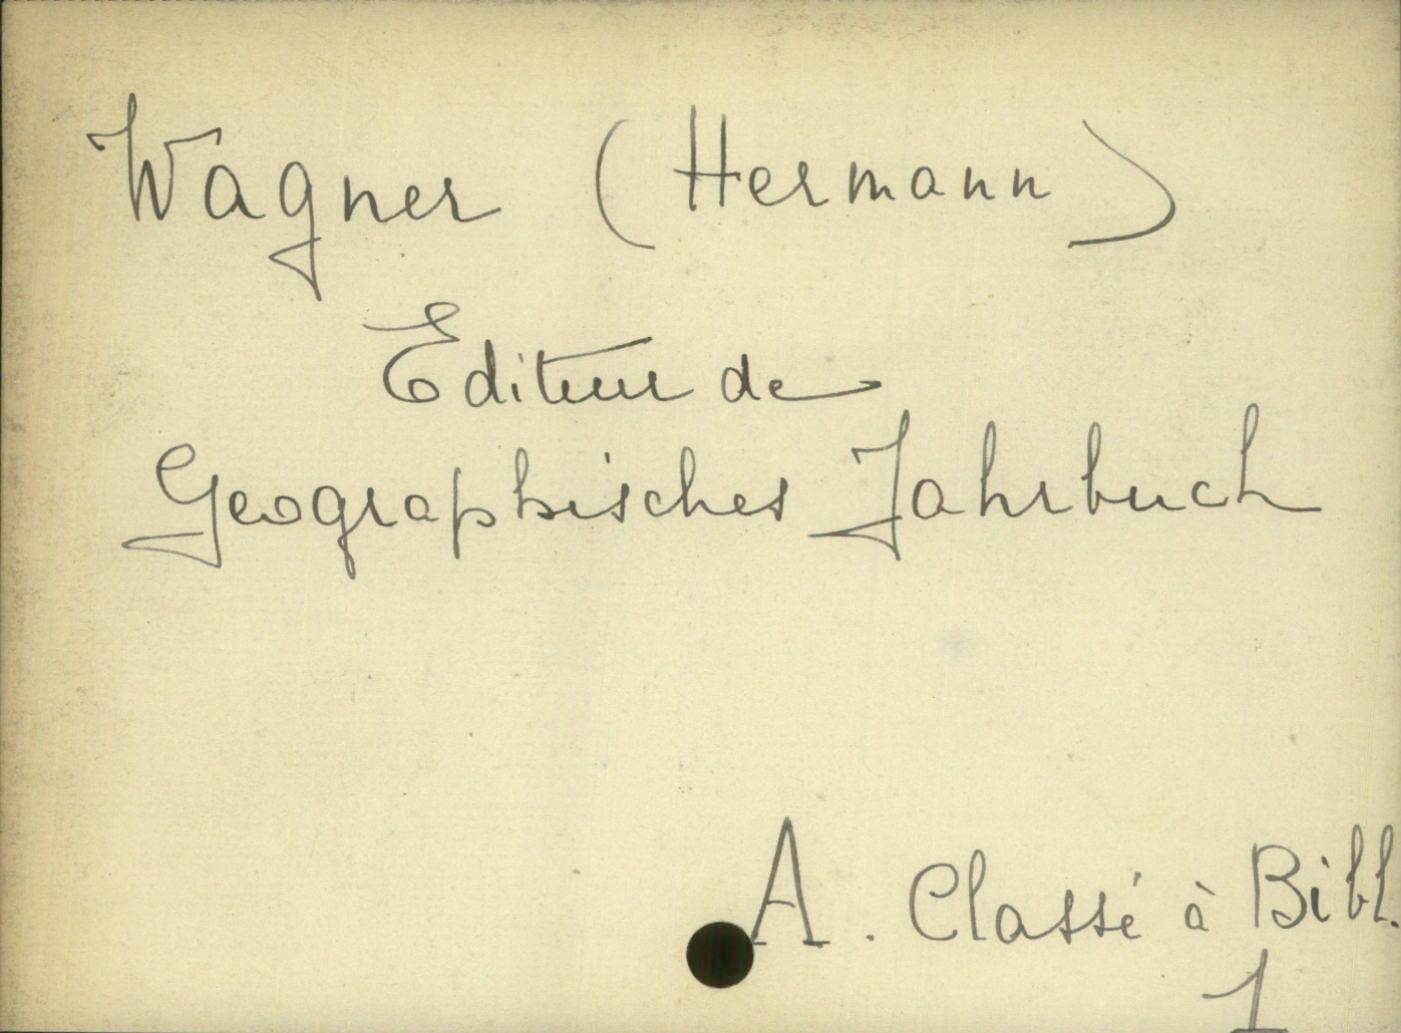 Wagner (Hermann)
Editeur de
Geographisches Jahrbuch
A. Classé à Bibl.